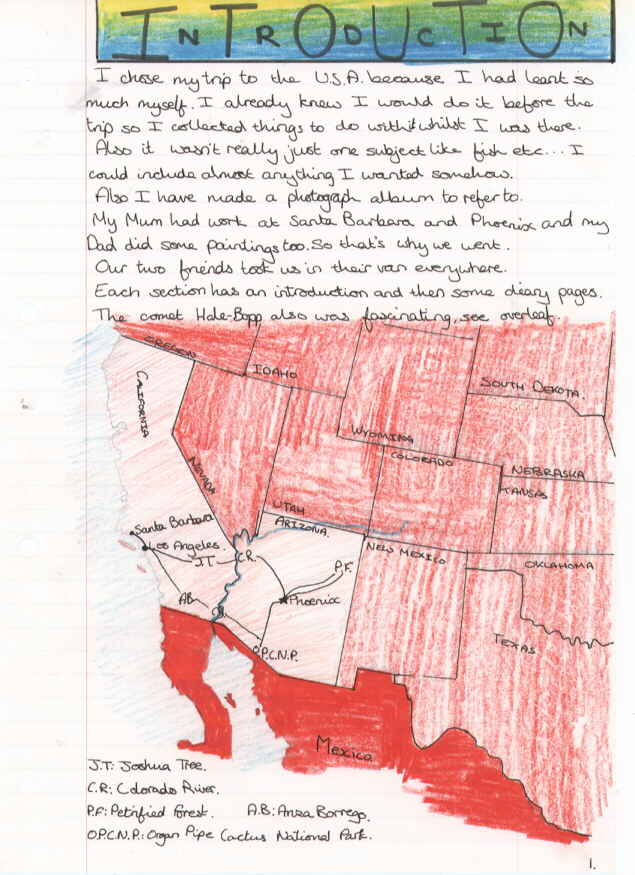 INTRODUCTION
I chose my trip to the U.S.A. because I had learnt so
much myself. I already knew I would do it before the
trip so I collected things to do with it whilst I was there.
Also it wasn't really just one subject like fish etc... I
could include almost anything I wanted somehow.
Also I have made a photograph album to refer to.
My Mum had work at Santa Barbara and Phoenix and my
Dad did some paintings too. So that's why we went.
Our two friends took us in their van everywhere.
Each section has an introduction and then some diary pages.
The comet Hale-Bopp also was fascinating, see overleaf.
OREGON
IDAHO
CALIFORNIA
SOUTH DEKOTA.
WYOMING
COLORADO
NEVADA
NEBRASKA
KANSAS
UTAH
ARIZONA.
Santa Barbara
Los Angeles.
J.T.
C.R.
NEW MEXICO
OKLAHOMA
P.F.
A.B.
Phoenix
C.R.
TEXAS
O.P.C.N.P.
Mexico
J.T: Joshua Tree.
C.R: Colorado River.
P.F: Petrified Forest. A.B: Anza Borrego.
O.P.C.N.P.: Organ Pipe Cactus National Park.
1.